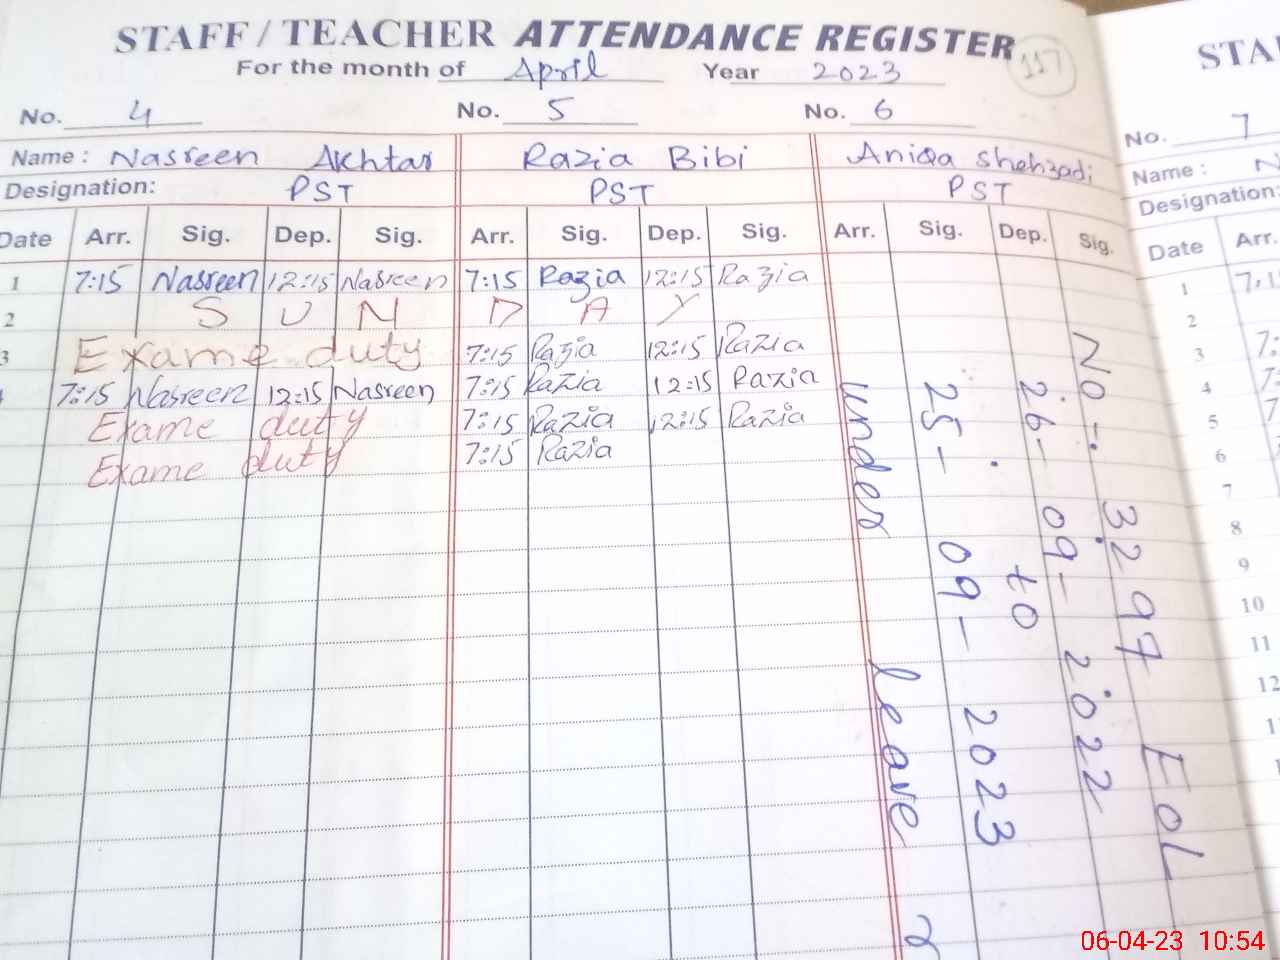 STAFF / TEACHER ATTENDANCE REGISTER
117
For the month of April Year 2023
No. 4 No. 5 No. 6
Name : Nasreen Akhtar Razia Bibi Aniqa Shehzadi
Designation: PST PST PST
Date Arr. Sig. Dep. Sig. Arr. Sig. Dep. Sig. Arr. Sig. Dep. Sig.
1 7:15 Nasreen 12:15 Nasreen 7:15 Razia 12:15 Razia
2 S U N D A Y
3 Exame duty 7:15 Razia 12:15 Razia
7:15 Nasreen 12:15 Nasreen 7:15 Razia 12:15 Razia
Exame duty 7:15 Razia 12:15 Razia
Exame duty 7:15 Razia
No-: 3297 EOL
26-09-2022
to
25-09-2023
under leave
STA
No. 7
Name :
Designation:
Date Arr.
1
2
3
4
5
6
7
8
9
10
11
12
06-04-23 10:54